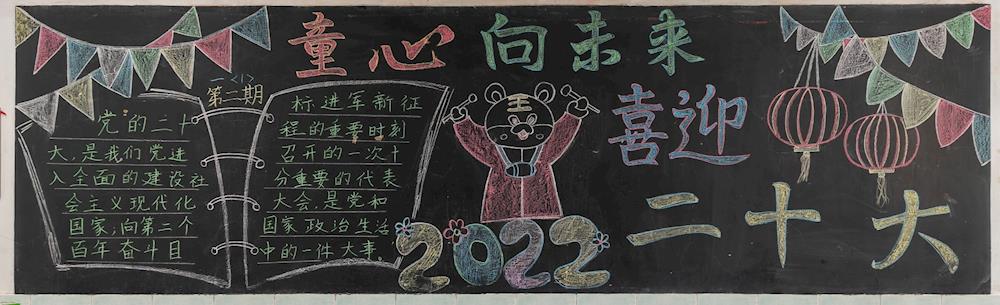 童心向未来
一〈1〉
第二期
党的二十
大,是我们党进
入全面的建设社
会主义现代化
国家,向第二个
百年奋斗目
标进军新征
程的重要时刻
召开的一次十
分重要的代表
大会,是党和
国家政治生活
中的一件大事。
王
2022
喜迎
二十大